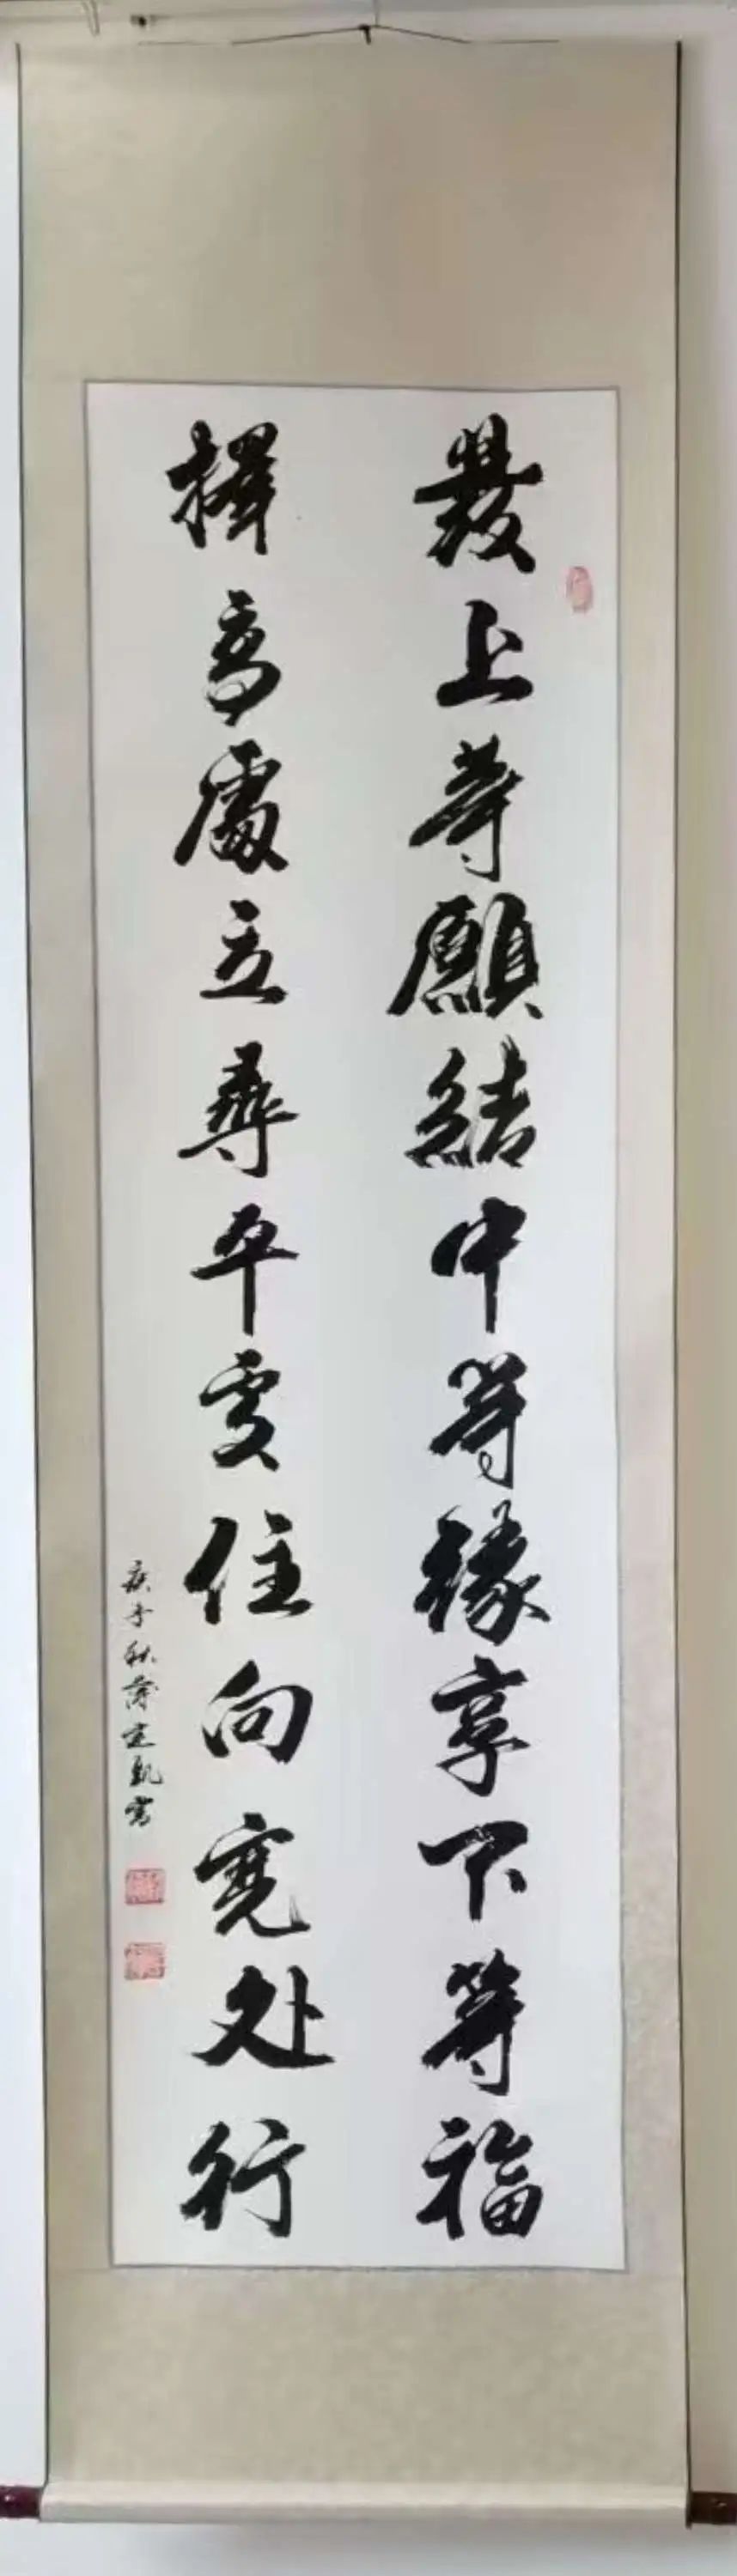 發上等願結中等緣享下等福
擇高處立尋平處住向寬处行
庚子秋薛建凱書